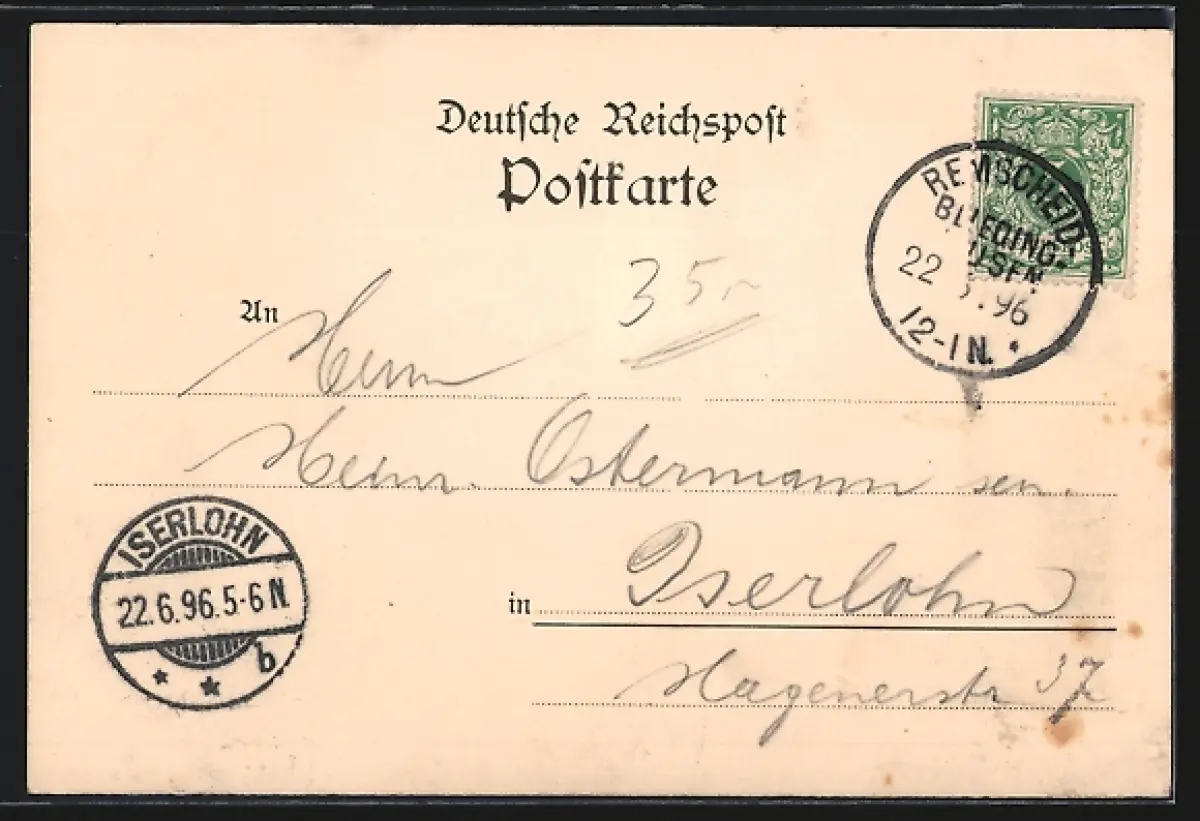 Deutsche Reichspost
Postkarte
REMSCHEID-
BLIEDING-
HAUSEN
22 .96
12-1N.
35,-
An Herrn
Heinr. Ostermann sen.
in Iserlohn
Hagenerstr 37
ISERLOHN
22.6.96.5-6N.
b